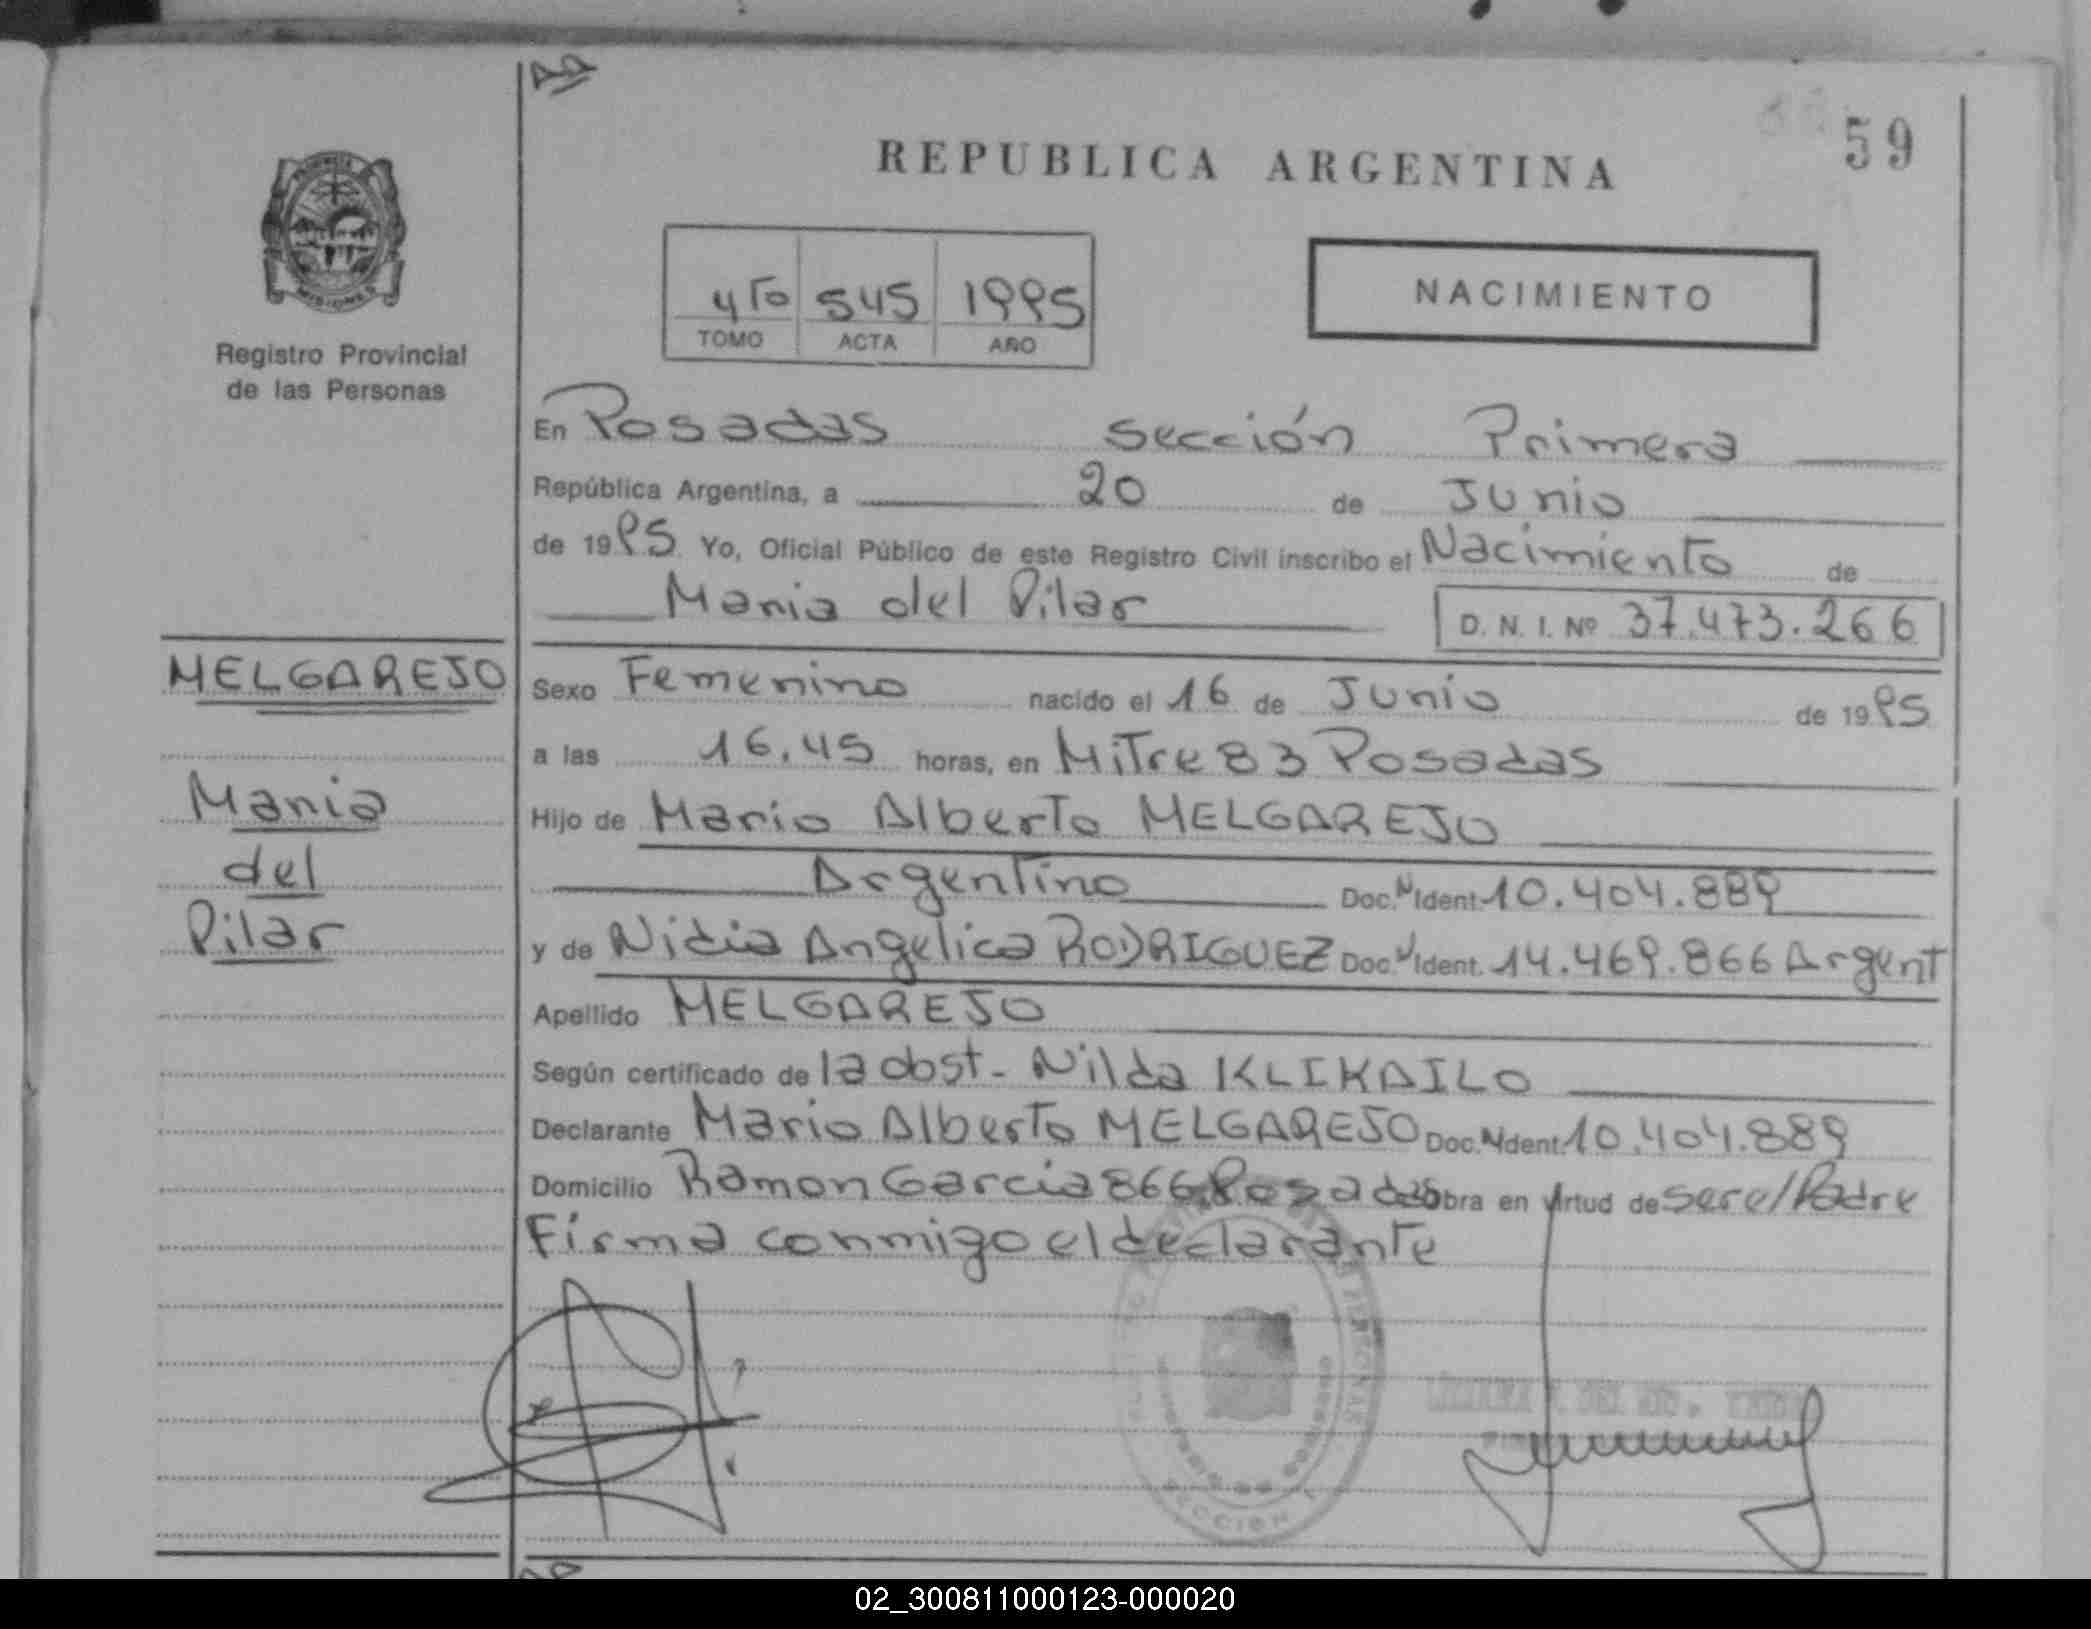 59
REPUBLICA ARGENTINA
NACIMIENTO
4to 545 1995
TOMO ACTA AÑO
Registro Provincial
de las Personas
En Posadas sección Primera
República Argentina, a 20 de Junio
de 1995 Yo, Oficial Público de este Registro Civil inscribo el Nacimiento de
Maria del Pilar
D. N. I. Nº 37.473.266
MELGAREJO
Maria
del
Pilar
Sexo Femenino nacido el 16 de Junio de 1995
a las 16.45 horas, en Mitre 83 Posadas
Hijo de Mario Alberto MELGAREJO
Argentino Doc.N Ident. 10.404.889
y de Nidia Angelica RODRIGUEZ Doc.N Ident. 14.469.866 Argent
Apellido MELGAREJO
Según certificado de la obst- Nilda KLIKAILO
Declarante Mario Alberto MELGAREJO Doc.N Ident. 10.404.889
Domicilio Ramon Garcia 866 Posadas obra en virtud de ser el/Padre
Firma conmigo el declarante
SECCION
02_300811000123-000020